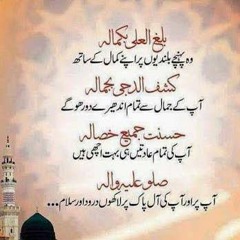 بلغ العلیٰ بکمالہ
وہ پہنچے بلندیوں پر اپنے کمال کے ساتھ
کشف الدجیٰ بجمالہ
آپ کے جمال سے تمام اندھیرے دور ہوگے
حسنت جمیع خصالہ
آپ کی تمام عادتیں ہی بہت اچھی ہیں
صلو علیہ وآلہ
آپ پر اور آپ کی آل پاک پر لاکھوں درود اور سلام...